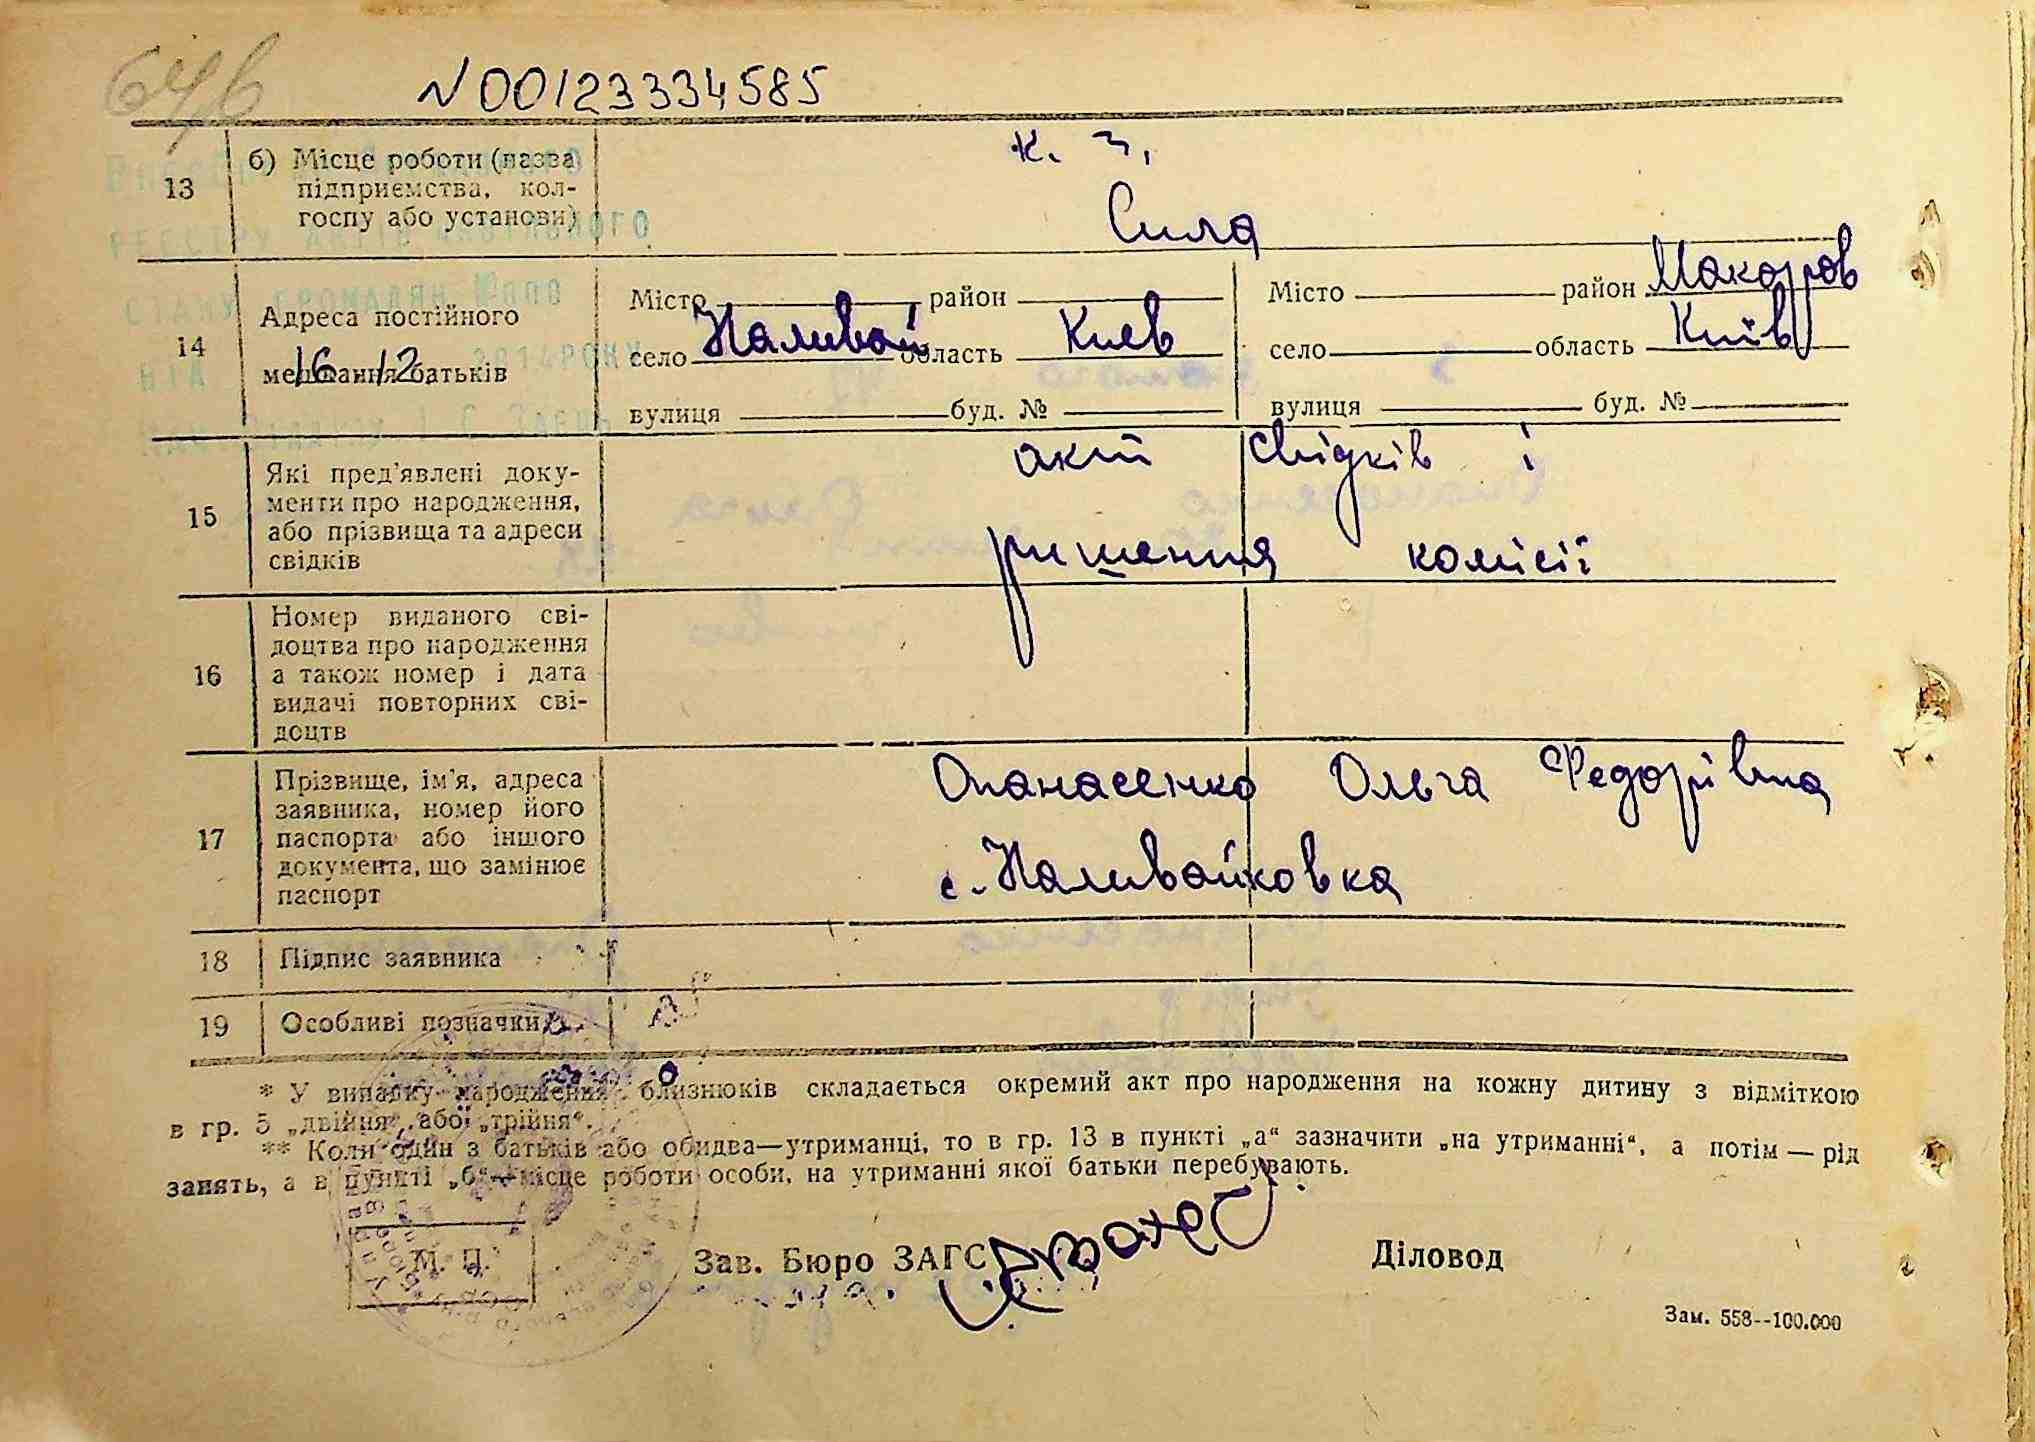 646
N00123334585
13
б) Місце роботи (назва
підприємства, кол-
госпу або установи)
к. з.
Сила
РЕЄСТРУ АКТІВ ЦИВІЛЬНОГО
СТАНУ ГРОМАДЯН
16 12. 2014РОКУ
14
Адреса постійного
мешкання батьків
Місто район
село Наливай область Киев
вулиця буд. №
Місто район Макаров
село область Київ
вулиця буд. №
15
Які пред'явлені доку-
менти про народження,
або прізвища та адреси
свідків
акт свідків і
ришения комісії
16
Номер виданого сві-
доцтва про народження
а також номер і дата
видачі повторних сві-
доцтв
17
Прізвище, ім'я, адреса
заявника, номер його
паспорта або іншого
документа, що замінює
паспорт
Опанасенко Ольга Федорівна
с. Наливайковка
18
Підпис заявника
19
Особливі позначки
* У випадку народження близнюків складається окремий акт про народження на кожну дитину з відміткою
в гр. 5 „двійня" або „трійня".
** Коли один з батьків або обидва—утриманці, то в гр. 13 в пункті „а" зазначити „на утриманні", а потім — рід
занять, а в пункті „б"—місце роботи особи, на утриманні якої батьки перебувають.
М. П.
Зав. Бюро ЗАГС
Діловод
Зам. 558--100.000